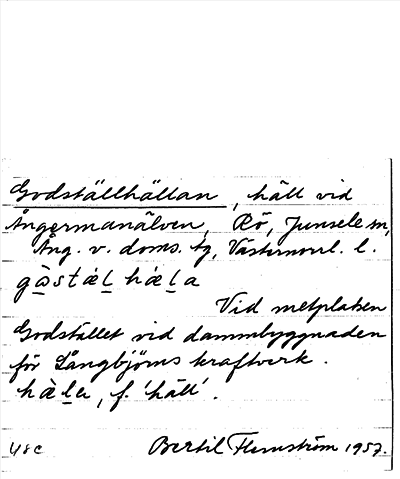 Godställhällan, häll vid
Ångermanälven, Rö, Junsele sn,
Ång. v. doms. tg, Västernorrl. l.
gɷ̀stæ̀l hæ̀la
Vid metplatsen
Godstället vid dammbyggnaden
för Långbjörns kraftverk.
hæ̀la, f. 'häll'.
48c Bertil Flemström 1957.